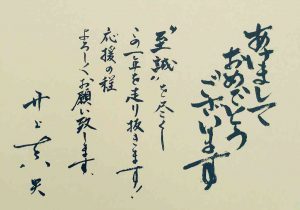 あけまして
おめでとう
ございます
"至誠"を尽くし
この一年を走り抜きます!
応援の程
よろしくお願い致します
井上